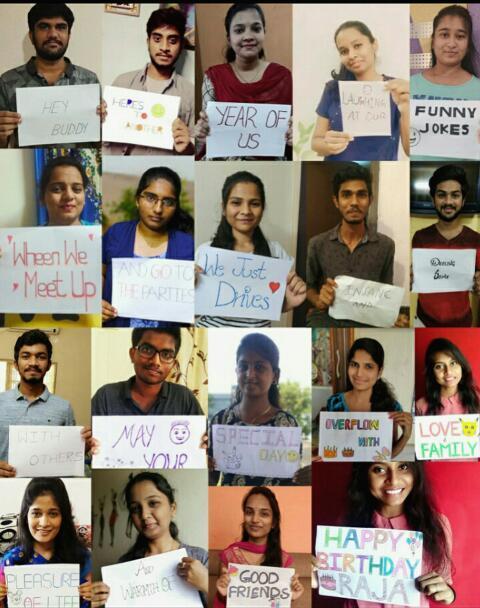 HEY
BUDDY
HERE'S
TO
ANOTHER
YEAR OF
US
LAUGHING
AT OUR
FUNNY
JOKES
Wheen We
Meet Up
AND GO TO
THE PARTIES
We Just
Drives
INSANE
AND
WITH
OTHERS
MAY
YOUR
SPECIAL
DAY
OVERFLOW
WITH
LOVE
FAMILY
PLEASURE
OF LIFE
And
WARMTH OF
GOOD
FRIENDS
HAPPY
BIRTHDAY
RAJA